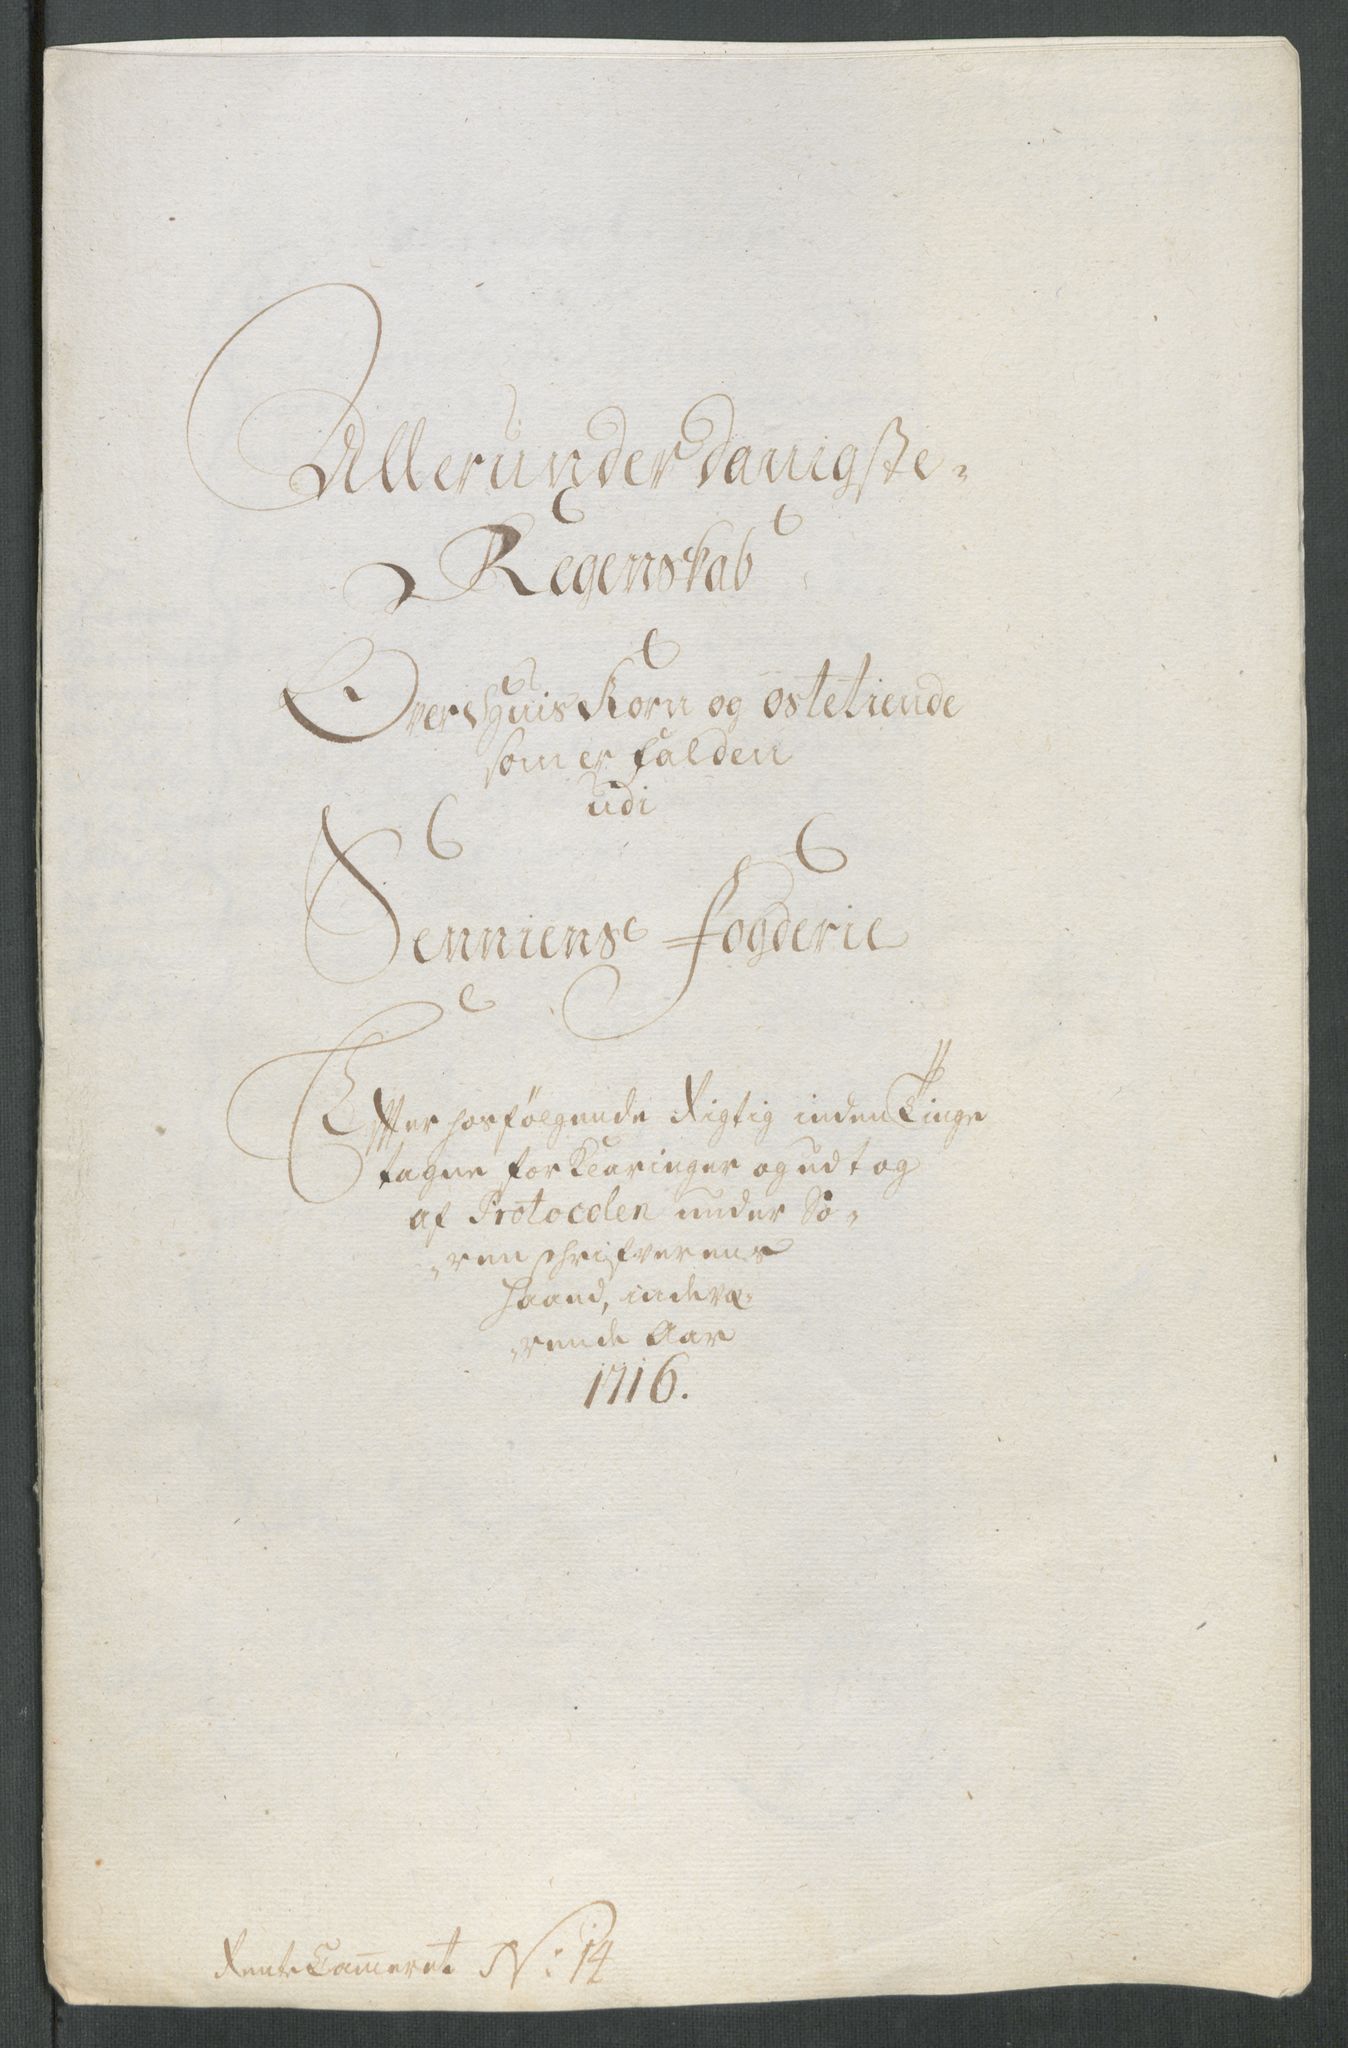 Allerunderdanigste
Regenskab
Over hvis Korn og ostetiende
som er falden
udi
Senniens Fogderie
Efter hosfölgende Rigtig inden Tinge
tagne forklaringer og udtog
af Protocolen under So-
-ren schrifverens
Haand, indevæ-
-rende Aar
1716.
Rente Cammeret No: 14